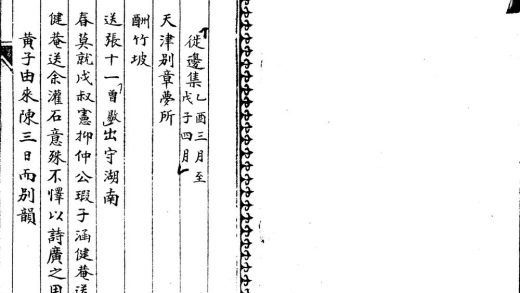 徙邊集乙酉三月至戊子四月
天津别章夢所
酬竹坡
送張十一曾敭出守湖南
春莫就戍叔憲抑仲公瑕子涵健菴送
健菴送余灌石意殊不懌以詩廣之用
黄子由來陳三日而别韻